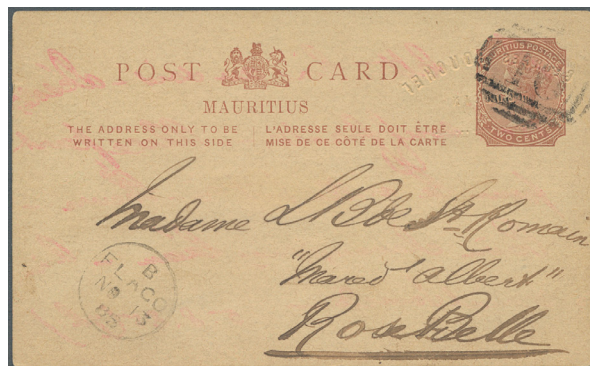 POST CARD
MAURITIUS
THE ADDRESS ONLY TO BE WRITTEN ON THIS SIDE
L'ADRESSE SEULE DOIT ÊTRE MISE DE CE CÔTÉ DE LA CARTE
MAURITIUS POSTAGE
TWO CENTS
Madame L B de St Romain
"Mared Albert"
Rose Belle
B
FLACQ
NO 13
85